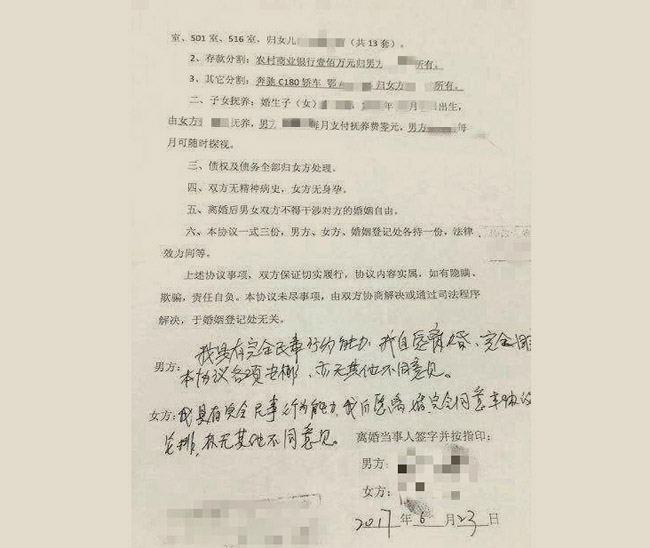 室、501 室、516 室、归女儿（共 13 套）。
2、存款分割：农村商业银行壹佰万元归男方所有。
3、其它分割：奔驰 C180 轿车 鄂归女方所有。
二、子女抚养：婚生子（女）年月日出生，
由女方抚养，男方每月支付抚养费零元，男方每
月可随时探视。
三、债权及债务全部归女方处理。
四、双方无精神病史，女方无身孕。
五、离婚后男女双方不得干涉对方的婚姻自由。
六、本协议一式三份，男方、女方、婚姻登记处各持一份，法律
效力同等。
上述协议事项、双方保证切实履行，协议内容实属，如有隐瞒、
欺骗，责任自负。本协议未尽事项，由双方协商解决或通过司法程序
解决，于婚姻登记处无关。
男方：我具有完全民事行为能力，我自愿离婚，完全同意
本协议各项安排，亦无其他不同意见。
女方：我具有完全民事行为能力，我自愿离婚，完全同意本协议
安排，亦无其他不同意见。
离婚当事人签字并按指印：
男方：
女方：
2017 年 6 月 23 日